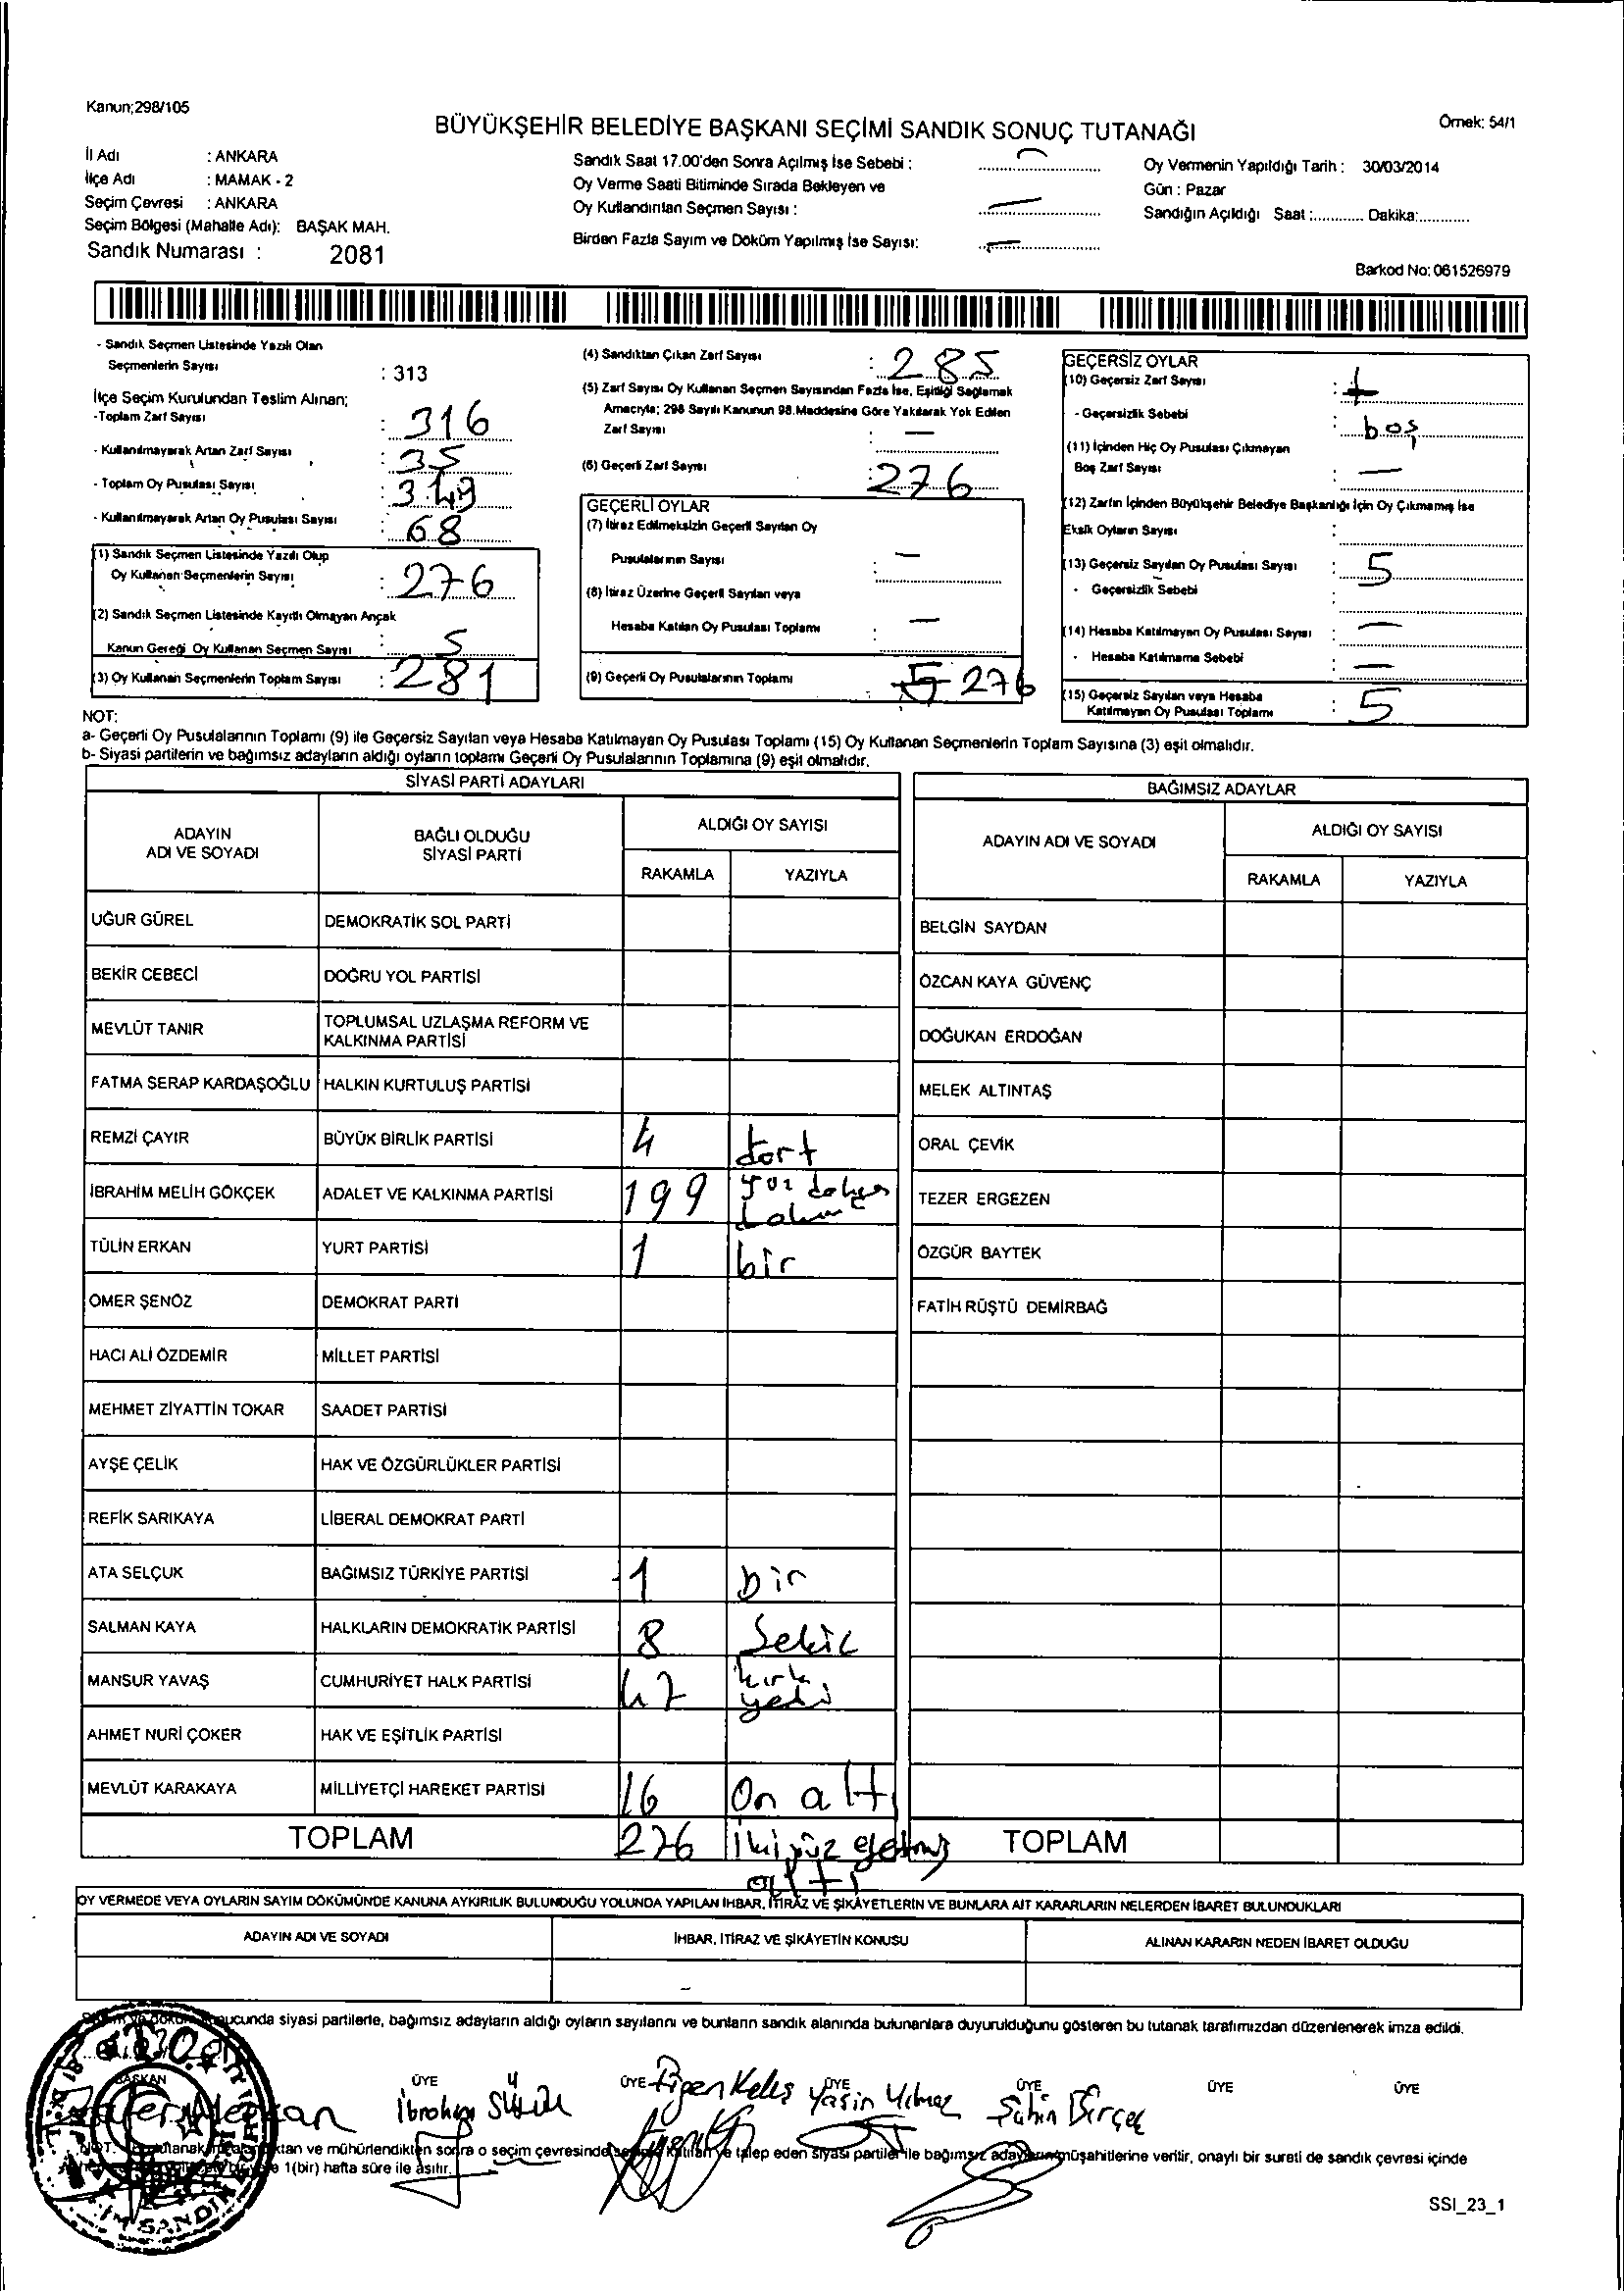 Kanun;298/105
BÜYÜKŞEHİR BELEDİYE BAŞKANI SEÇİMİ SANDIK SONUÇ TUTANAĞI
Örnek: 54/1
İl Adı : ANKARA
İlçe Adı : MAMAK - 2
Seçim Çevresi : ANKARA
Seçim Bölgesi (Mahalle Adı): BAŞAK MAH.
Sandık Numarası : 2081
Sandık Saat 17.00'den Sonra Açılmış İse Sebebi :
Oy Verme Saati Bitiminde Sırada Bekleyen ve
Oy Kullandırılan Seçmen Sayısı :
Birden Fazla Sayım ve Döküm Yapılmış İse Sayısı:
Oy Vermenin Yapıldığı Tarih : 30/03/2014
Gün : Pazar
Sandığın Açıldığı Saat :............ Dakika:............
Barkod No: 061526979
- Sandık Seçmen Listesinde Yazılı Olan
Seçmenlerin Sayısı : 313
İlçe Seçim Kurulundan Teslim Alınan;
-Toplam Zarf Sayısı : 316
- Kullanılmayarak Artan Zarf Sayısı : 35
- Toplam Oy Pusulası Sayısı : 349
- Kullanılmayarak Artan Oy Pusulası Sayısı : 68
(1) Sandık Seçmen Listesinde Yazılı Olup
Oy Kullanan Seçmenlerin Sayısı : 276
(2) Sandık Seçmen Listesinde Kayıtlı Olmayan Ancak
Kanun Gereği Oy Kullanan Seçmen Sayısı : 5
(3) Oy Kullanan Seçmenlerin Toplam Sayısı : 281
(4) Sandıktan Çıkan Zarf Sayısı : 285
(5) Zarf Sayısı Oy Kullanan Seçmen Sayısından Fazla İse, Eşitliği Sağlamak
Amacıyla; 298 Sayılı Kanunun 98.Maddesine Göre Yakılarak Yok Edilen
Zarf Sayısı : —
(6) Geçerli Zarf Sayısı : 276
GEÇERLİ OYLAR
(7) İtiraz Edilmeksizin Geçerli Sayılan Oy
Pusulalarının Sayısı : —
(8) İtiraz Üzerine Geçerli Sayılan veya
Hesaba Katılan Oy Pusulası Toplamı : —
(9) Geçerli Oy Pusulalarının Toplamı : 5 276
GEÇERSİZ OYLAR
(10) Geçersiz Zarf Sayısı :
- Geçersizlik Sebebi : boş
(11) İçinden Hiç Oy Pusulası Çıkmayan
Boş Zarf Sayısı : —
(12) Zarfın İçinden Büyükşehir Belediye Başkanlığı İçin Oy Çıkmamış İse
Eksik Oyların Sayısı :
(13) Geçersiz Sayılan Oy Pusulası Sayısı : 5
- Geçersizlik Sebebi :
(14) Hesaba Katılmayan Oy Pusulası Sayısı : —
- Hesaba Katılmama Sebebi : —
(15) Geçersiz Sayılan veya Hesaba
Katılmayan Oy Pusulası Toplamı : 5
NOT:
a- Geçerli Oy Pusulalarının Toplamı (9) ile Geçersiz Sayılan veya Hesaba Katılmayan Oy Pusulası Toplamı (15) Oy Kullanan Seçmenlerin Toplam Sayısına (3) eşit olmalıdır.
b- Siyasi partilerin ve bağımsız adayların aldığı oyların toplamı Geçerli Oy Pusulalarının Toplamına (9) eşit olmalıdır.
SİYASİ PARTİ ADAYLARI
ADAYIN ADI VE SOYADI
BAĞLI OLDUĞU SİYASİ PARTİ
ALDIĞI OY SAYISI
RAKAMLA YAZIYLA
UĞUR GÜREL DEMOKRATİK SOL PARTİ
BEKİR CEBECİ DOĞRU YOL PARTİSİ
MEVLÜT TANIR TOPLUMSAL UZLAŞMA REFORM VE
KALKINMA PARTİSİ
FATMA SERAP KARDAŞOĞLU HALKIN KURTULUŞ PARTİSİ
REMZİ ÇAYIR BÜYÜK BİRLİK PARTİSİ 4 dört
İBRAHİM MELİH GÖKÇEK ADALET VE KALKINMA PARTİSİ 199 yüz
TÜLİN ERKAN YURT PARTİSİ 1 bir
ÖMER ŞENÖZ DEMOKRAT PARTİ
HACI ALİ ÖZDEMİR MİLLET PARTİSİ
MEHMET ZİYATTİN TOKAR SAADET PARTİSİ
AYŞE ÇELİK HAK VE ÖZGÜRLÜKLER PARTİSİ
REFİK SARIKAYA LİBERAL DEMOKRAT PARTİ
ATA SELÇUK BAĞIMSIZ TÜRKİYE PARTİSİ 1 bir
SALMAN KAYA HALKLARIN DEMOKRATİK PARTİSİ 8 Sekiz
MANSUR YAVAŞ CUMHURİYET HALK PARTİSİ 47 kırk
yedi
AHMET NURİ ÇOKER HAK VE EŞİTLİK PARTİSİ
MEVLÜT KARAKAYA MİLLİYETÇİ HAREKET PARTİSİ 16 On altı
TOPLAM 276 ikiyüz yetmiş
altı
BAĞIMSIZ ADAYLAR
ADAYIN ADI VE SOYADI
ALDIĞI OY SAYISI
RAKAMLA YAZIYLA
BELGİN SAYDAN
ÖZCAN KAYA GÜVENÇ
DOĞUKAN ERDOĞAN
MELEK ALTINTAŞ
ORAL ÇEVİK
TEZER ERGEZEN
ÖZGÜR BAYTEK
FATİH RÜŞTÜ DEMİRBAĞ
TOPLAM
OY VERMEDE VEYA OYLARIN SAYIM DÖKÜMÜNDE KANUNA AYKIRILIK BULUNDUĞU YOLUNDA YAPILAN İHBAR, İTİRAZ VE ŞİKÂYETLERİN VE BUNLARA AİT KARARLARIN NELERDEN İBARET BULUNDUKLARI
ADAYIN ADI VE SOYADI İHBAR, İTİRAZ VE ŞİKÂYETİN KONUSU ALINAN KARARIN NEDEN İBARET OLDUĞU
siyasi partilerle, bağımsız adayların aldığı oyların sayılarını ve bunların sandık alanında bulunanlara duyurulduğunu gösteren bu tutanak tarafımızdan düzenlenerek imza edildi.
BAŞKAN ÜYE ÜYE ÜYE ÜYE ÜYE ÜYE
İbrahim Keleş Yasin Yılmaz Şahin
ve mühürlendikten sonra o seçim çevresinde ve talep eden siyasi partiler ile bağımsız müşahitlerine verilir, onaylı bir sureti de sandık çevresi içinde
1(bir) hafta süre ile asılır.
SSI_23_1